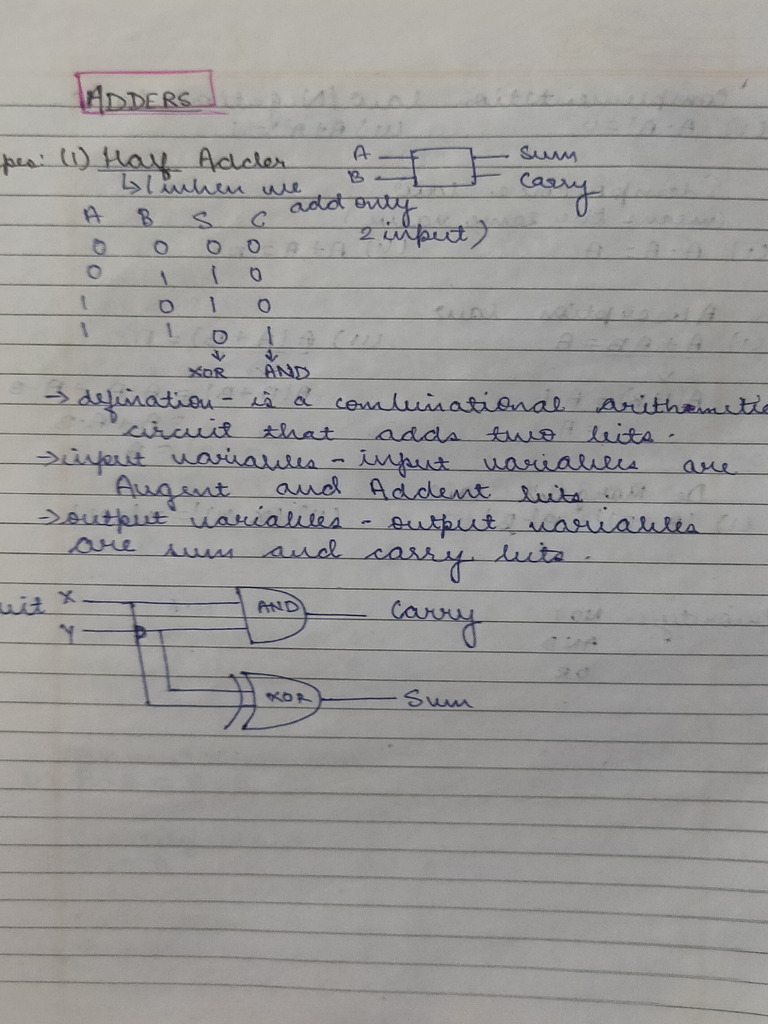 ADDERS
pes: (1) Half Adder
A
B
Sum
Carry
↳(when we
add only
2 input)
A B S C
0 0 0 0
0 1 1 0
1 0 1 0
1 1 0 1
↓ ↓
XOR AND
→ defination - is a combinational arithmetic
circuit that adds two bits.
→ input variables - input variables are
Augent and Addent bits.
→ output variables - output variables
are sum and carry bits.
uit X
Y
AND
Carry
XOR
Sum